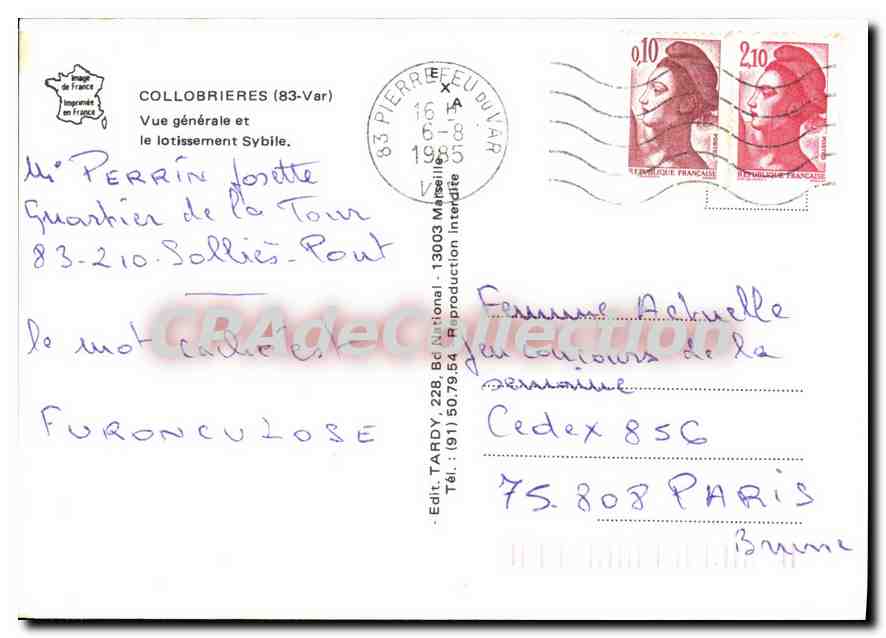 Image
de France
Imprimée
en France
COLLOBRIERES (83-Var)
Vue générale et
le lotissement Sybile.
Me PERRIN Josette
Quartier de la Tour
83-210-Solliès-Pont
le mot caché est
FURONCULOSE
- Edit. TARDY, 228, Bd National - 13003 Marseille
Tél. : (91) 50.79.54 Reproduction interdite
EXA
83 PIERREFEU DU VAR
16 H
6-8
1985
0,10
REPUBLIQUE FRANÇAISE
2,10
REPUBLIQUE FRANÇAISE
Femme Actuelle
Jeu concours de la
semaine
Cedex 856
75.808 PARIS
Brune
CPAdeCollection